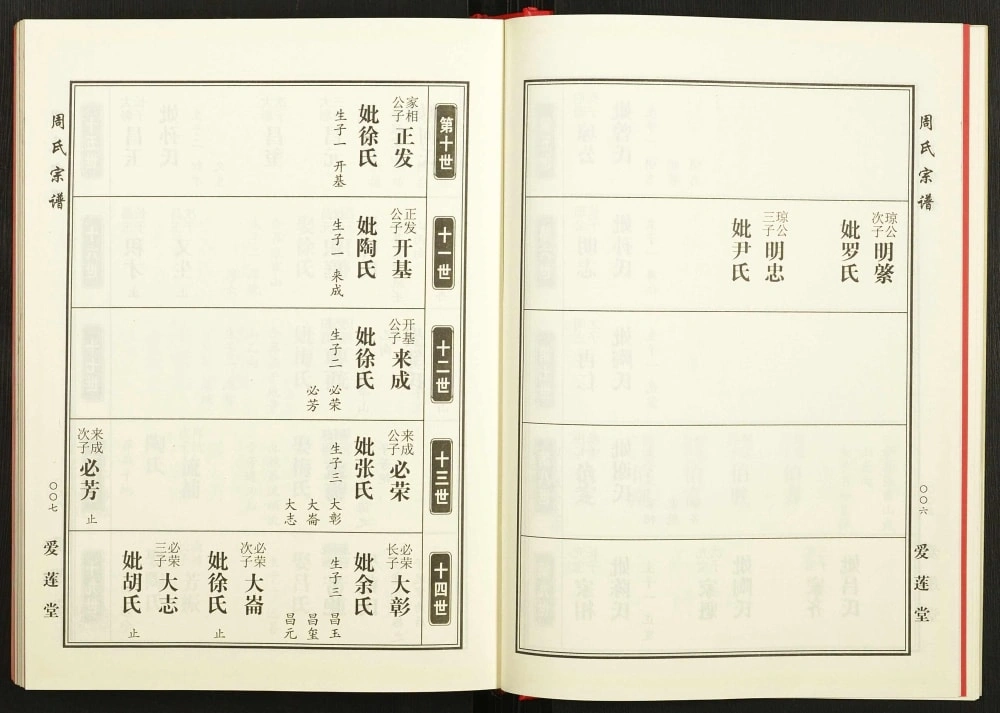 周氏宗谱
〇〇六
爱莲堂
琼公次子 明繁
妣罗氏
琼公三子 明忠
妣尹氏
第十世
家相公子 正发
妣徐氏
生子一 开基
十一世
正发公子 开基
妣陶氏
生子一 来成
十二世
开基公子 来成
妣徐氏
生子二 必荣
必芳
十三世
来成公子 必荣
妣张氏
生子三 大彰
大崙
大志
来成次子 必芳 止
十四世
必荣长子 大彰
妣余氏
生子三 昌玉
昌玺
昌元
必荣次子 大崙
妣徐氏 止
必荣三子 大志
妣胡氏 止
周氏宗谱
〇〇七
爱莲堂